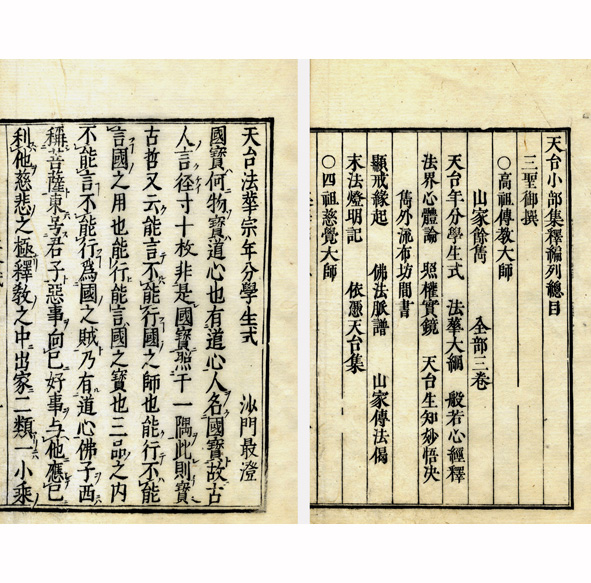 天台小部集釋編列總目
三聖御撰
○高祖傳教大師
山家餘雋 全部三卷
天台年分學生式 法華大綱 般若心經釋
法界心體論 照權實鏡 天台生知妙悟决
雋外流布坊間書
顯戒緣起 佛法脈譜 山家傳法偈
末法燈明記 依憑天台集
○四祖慈覺大師
天台法華宗年分學生式 沙門最澄
國寶何物寶道心也有道心人名國寶故古
人言径寸十枚非是國寶照千一隅此則寶
古哲又云能言不能行國之師也能行不能
言國之用也能行能言國之寶也三品之内
不能言不能行爲國之賊乃有道心佛子西
稱菩薩東号君子惡事向己好事与他應己
利他慈悲之極釋教之中出家二類一小乘